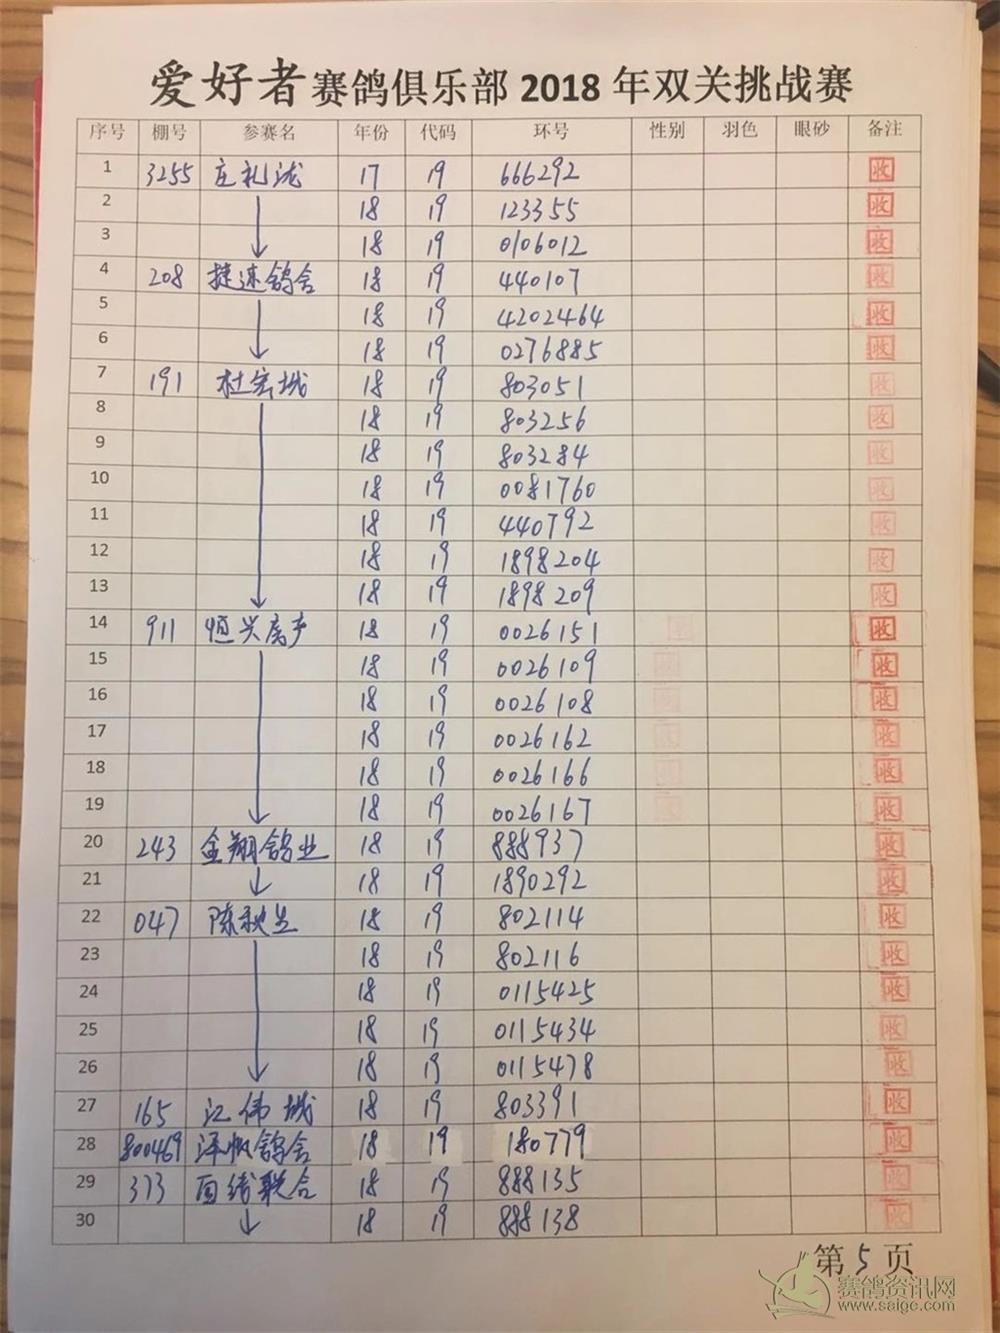 爱好者赛鸽俱乐部 2018 年双关挑战赛
序号 棚号 参赛名 年份 代码 环号 性别 羽色 眼砂 备注
1 3255 庄礼泷 17 19 666292 收
2 ↓ 18 19 123355 收
3 18 19 0106012 收
4 208 捷速鸽舍 18 19 440107 收
5 ↓ 18 19 4202464 收
6 18 19 0276885 收
7 191 杜宏城 18 19 803051 收
8 ↓ 18 19 803256 收
9 18 19 803284 收
10 18 19 0081760 收
11 18 19 440792 收
12 18 19 1898204 收
13 18 19 1898209 收
14 911 恒兴房产 18 19 0026151 收
15 ↓ 18 19 0026109 收
16 18 19 0026108 收
17 18 19 0026162 收
18 18 19 0026166 收
19 18 19 0026167 收
20 243 金翔鸽业 18 19 888937 收
21 ↓ 18 19 1890292 收
22 047 陈秋生 18 19 802114 收
23 ↓ 18 19 802116 收
24 18 19 0115425 收
25 18 19 0115434 收
26 18 19 0115478 收
27 165 江伟城 18 19 803391 收
28 800469 泽帆鸽舍 18 19 180779 收
29 373 面线联合 18 19 888135 收
30 ↓ 18 19 888138 收
第 5 页
赛鸽资讯网
www.saige.com